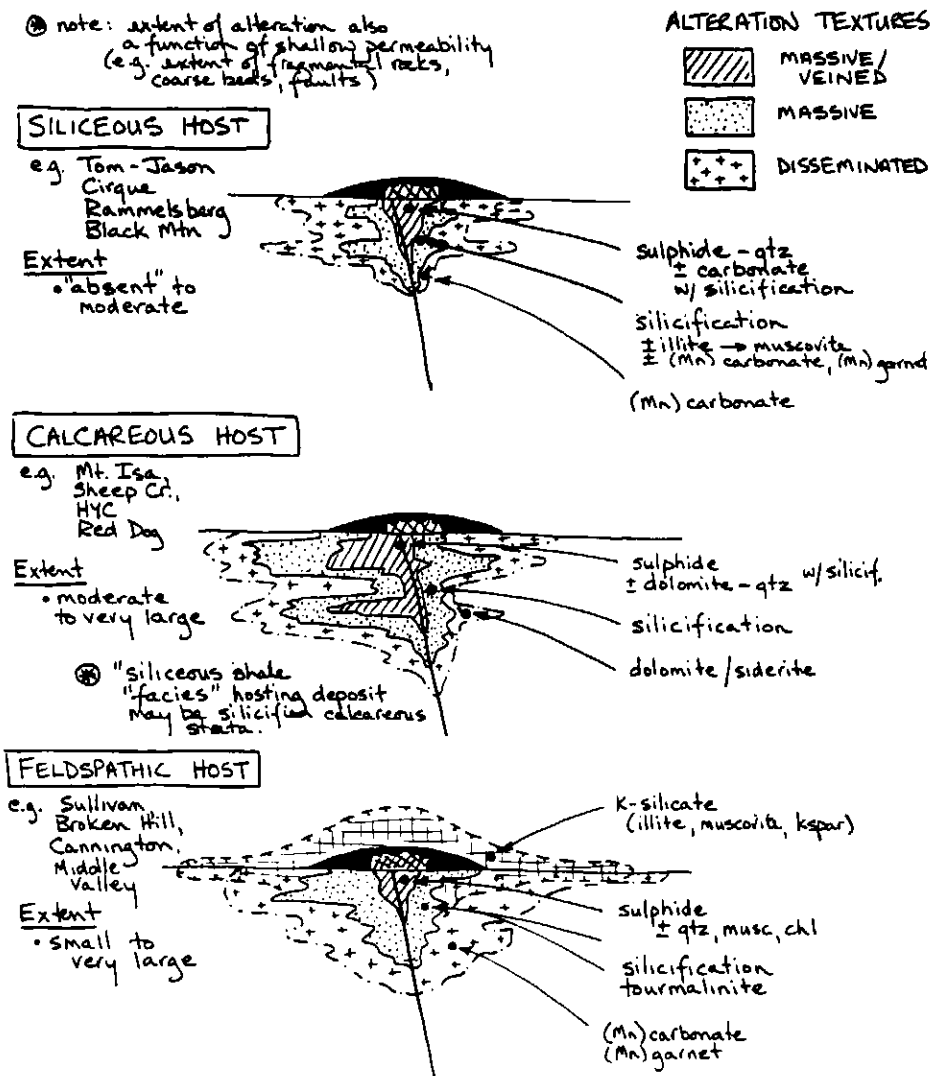 ⊛ note: extent of alteration also
a function of shallow permeability
(e.g. extent of fragmental rocks,
coarse beds, faults)
ALTERATION TEXTURES
MASSIVE/
VEINED
MASSIVE
DISSEMINATED
SILICEOUS HOST
e.g. Tom-Jason
Cirque
Rammelsberg
Black Mtn
Extent
• "absent" to
moderate
sulphide - qtz
± carbonate
w/ silicification
silicification
± illite → muscovite
± (Mn) carbonate, (Mn) garnet
(Mn) carbonate
CALCAREOUS HOST
e.g. Mt. Isa,
Sheep Cr.,
HYC
Red Dog
Extent
• moderate
to very large
⊛ "siliceous shale
"facies" hosting deposit
may be silicified calcareous
strata.
sulphide
± dolomite - qtz w/ silicif.
silicification
dolomite/siderite
FELDSPATHIC HOST
e.g. Sullivan
Broken Hill,
Cannington,
Middle
Valley
Extent
• small to
very large
K-silicate
(illite, muscovite, kspar)
sulphide
± qtz, musc, chl
silicification
tourmalinite
(Mn) carbonate
(Mn) garnet